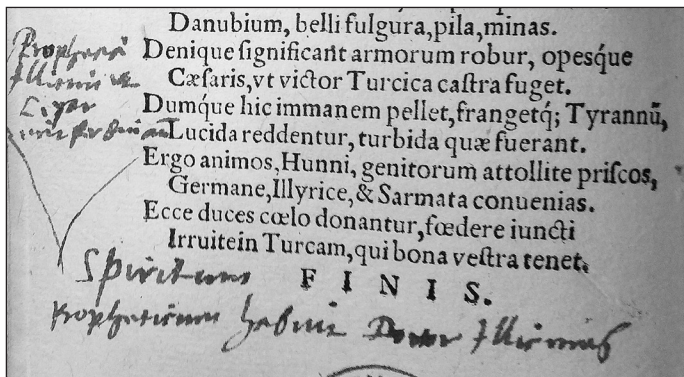 Danubium, belli fulgura, pila, minas.
Denique ſignificant armorum robur, opesq́ue
Cæſaris, vt victor Turcica caſtra fuget.
Dumq́ue hic immanem pellet, frangetq́; Tyrannũ,
Lucida reddentur, turbida quæ fuerant.
Ergo animos, Hunni, genitorum attollite priſcos,
Germane, Illyrice, & Sarmata conuenias.
Ecce duces cœlo donantur, fœdere iuncti
Irruitein Turcam, qui bona veſtra tenet.
F I N I S.
Spiritum
Propheticum habuit